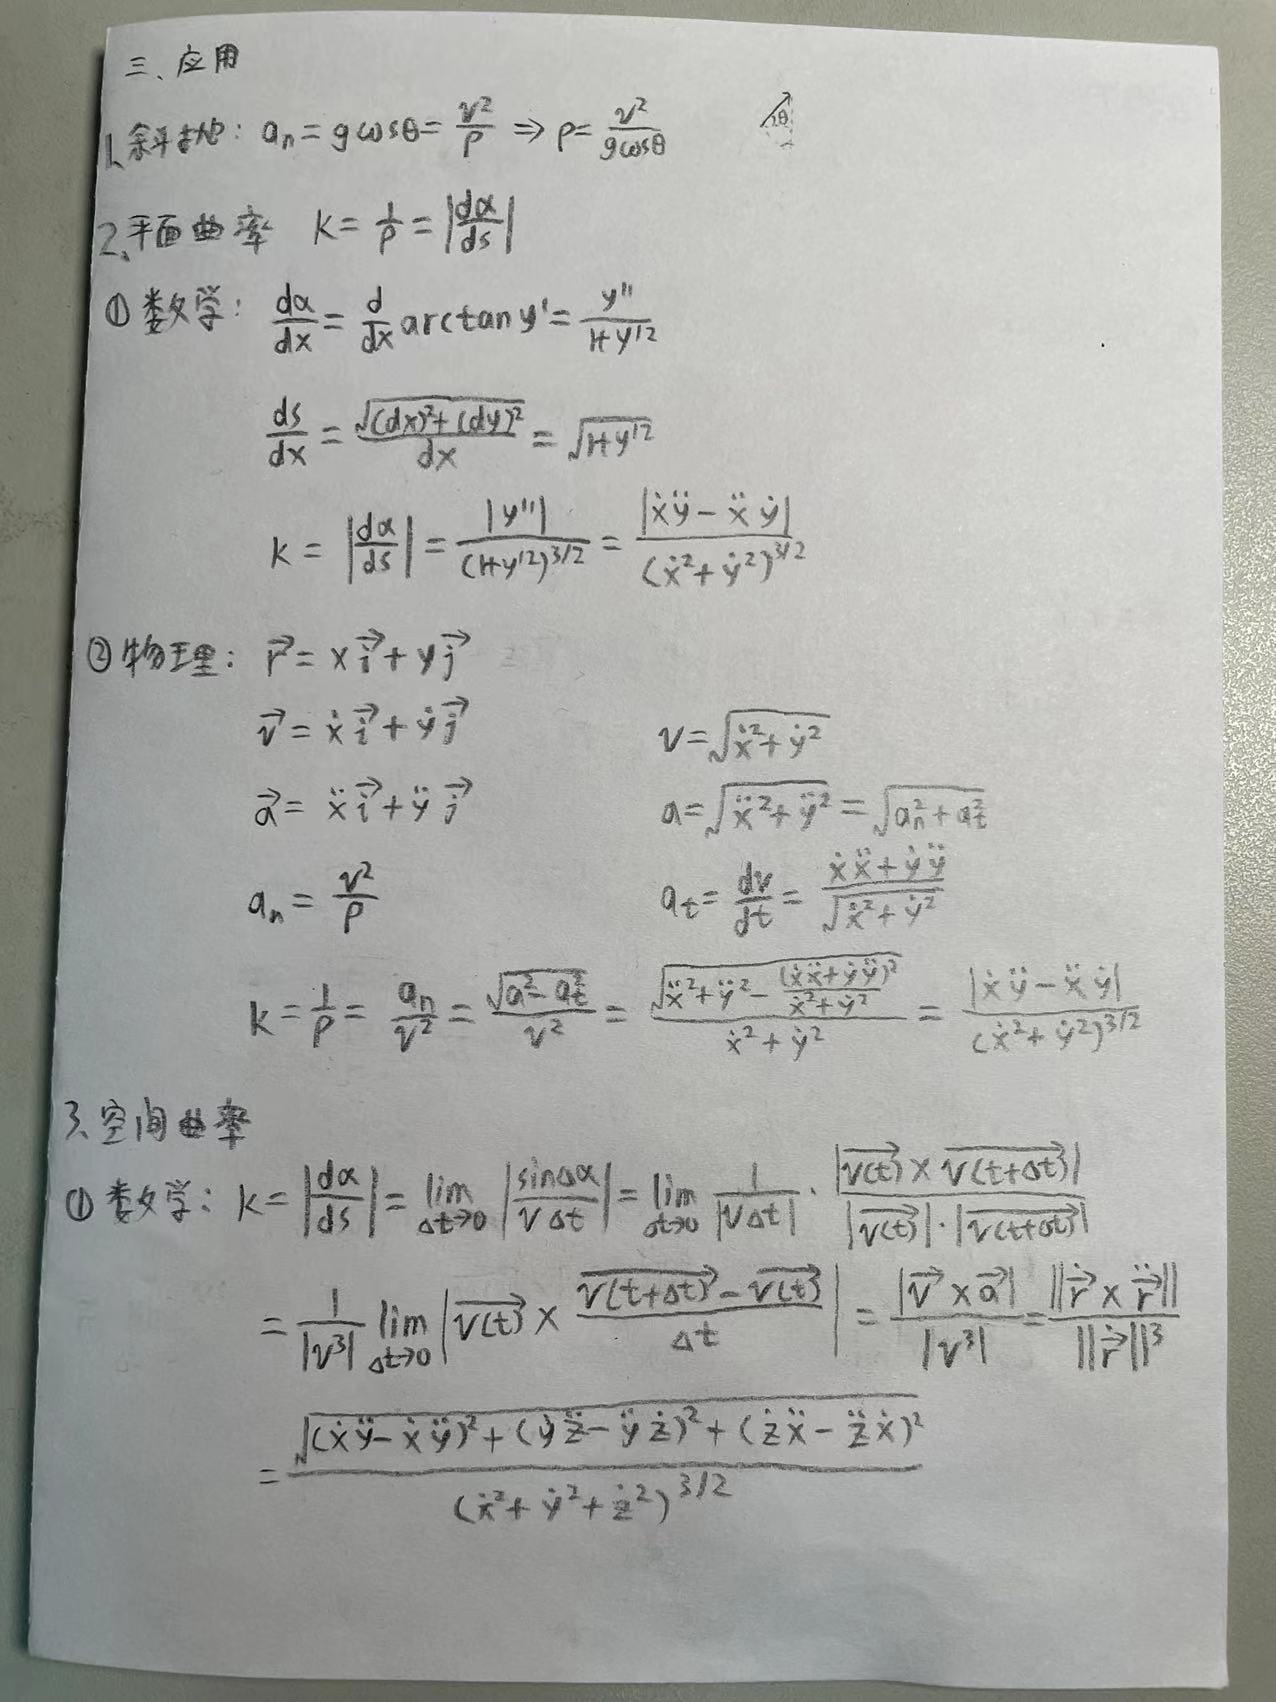 三、应用
1、斜抛: aₙ = gcosθ = v²/ρ ⇒ ρ = v²/(gcosθ) θ
2、平面曲率 k = 1/ρ = |dα/ds|
①数学: dα/dx = d/dx arctan y' = y''/(1+y'²)
ds/dx = √((dx)²+(dy)²)/dx = √(1+y'²)
k = |dα/ds| = |y''|/(1+y'²)^(3/2) = |ẋÿ - ẍẏ|/(ẋ²+ẏ²)^(3/2)
②物理: r⃗ = x i⃗ + y j⃗
v⃗ = ẋ i⃗ + ẏ j⃗ v = √(ẋ²+ẏ²)
a⃗ = ẍ i⃗ + ÿ j⃗ a = √(ẍ²+ÿ²) = √(aₙ²+aₜ²)
aₙ = v²/ρ aₜ = dv/dt = (ẋẍ+ẏÿ)/√(ẋ²+ẏ²)
k = 1/ρ = aₙ/v² = √(a²-aₜ²)/v² = √(ẍ²+ÿ²-(ẋẍ+ẏÿ)²/(ẋ²+ẏ²))/(ẋ²+ẏ²) = |ẋÿ - ẍẏ|/(ẋ²+ẏ²)^(3/2)
3、空间曲率
①数学: k = |dα/ds| = lim(Δt→0) |sinΔα/(vΔt)| = lim(Δt→0) 1/|vΔt| · |v(t)⃗ × v(t+Δt)⃗|/(|v(t)⃗|·|v(t+Δt)⃗|)
= 1/|v³| lim(Δt→0) |v(t)⃗ × (v(t+Δt)⃗ - v(t)⃗)/Δt| = |v⃗ × a⃗|/|v³| = ||ṙ⃗ × r̈⃗||/||ṙ⃗||³
= √((ẋÿ - ẋÿ)² + (ẏz̈ - ÿż)² + (żẍ - z̈ẋ)²)/(ẋ²+ẏ²+ż²)^(3/2)